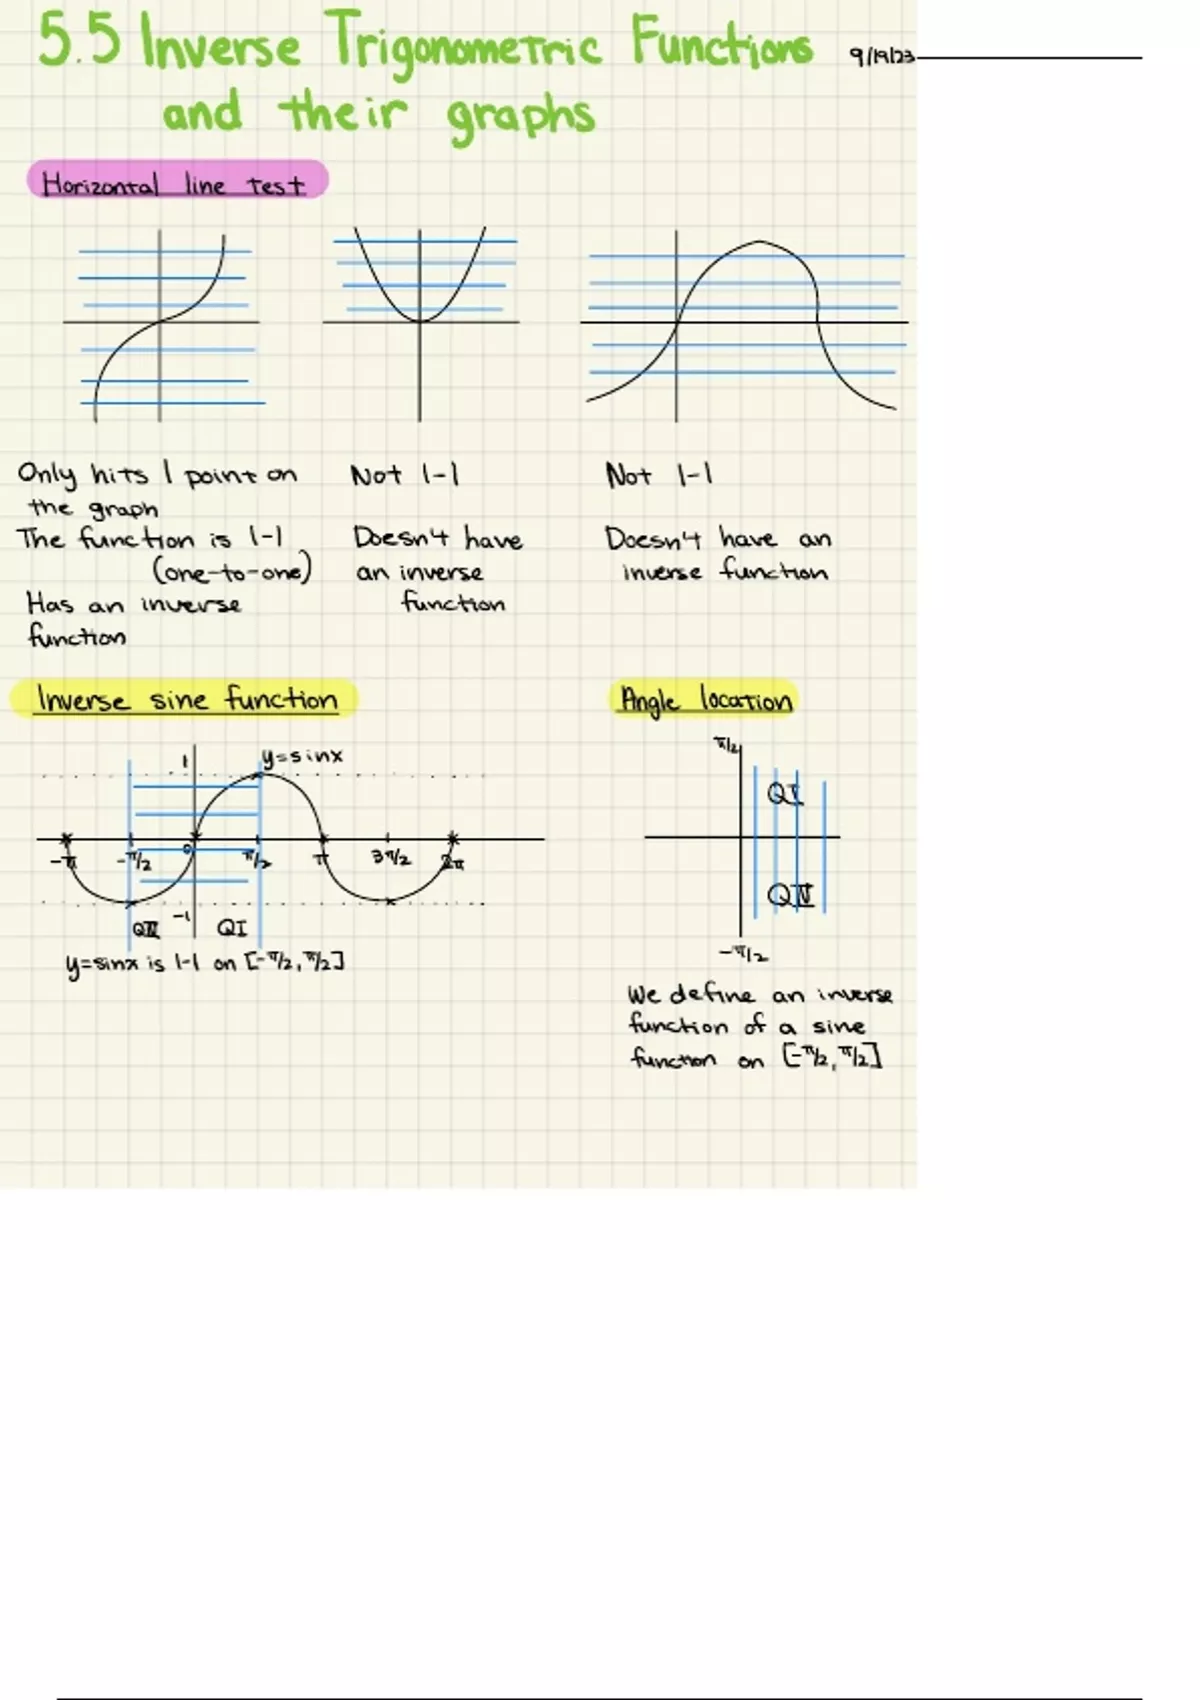 5.5 Inverse Trigonometric Functions 9/19/23
and their graphs
Horizontal line test
Only hits 1 point on
the graph
The function is 1-1
(one-to-one)
Has an inverse
function
Not 1-1
Doesn't have
an inverse
function
Not 1-1
Doesn't have an
inverse function
Inverse sine function
1
y=sinx
-π
-π/2
0
π/2
π
3π/2
2π
-1
QIV
QI
y=sinx is 1-1 on [-π/2, π/2]
Angle location
π/2
QI
QIV
-π/2
We define an inverse
function of a sine
function on [-π/2, π/2]